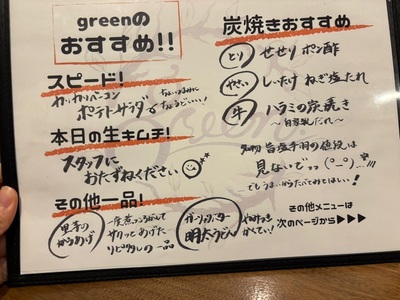 greenの
おすすめ!!
スピード!
カリカリベーコン
ポテトサラダ
ちょいつまみに
ちょうどいい!
本日の生キムチ!
スタッフに
おたずねください
その他一品!
里芋の
からあげ
一度煮っころがして
サクッとあげた
リピなしの一品
ガーリックバター
明太うどん
やみつき
かくてい!
炭焼きおすすめ
とり
せせり ポン酢
やさい
しいたけ ねぎ塩だれ
牛
ハラミの炭焼き
〜自家製だれ〜
名物 旨塩手羽の値段は
見ないでっっ
でもうまいからたべてみてほしい!
その他メニューは
次のページから▶▶▶
green